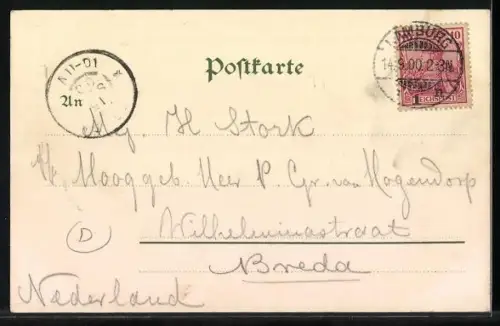 Postkarte
HAMBURG
14.9.00.2-3N
1 n
10
REICHSPOST
An
Mej. H Stork
Hooggeb. Heer P. Gr. van Hogendorp
Wilhelminastraat
Breda
D
Nederland